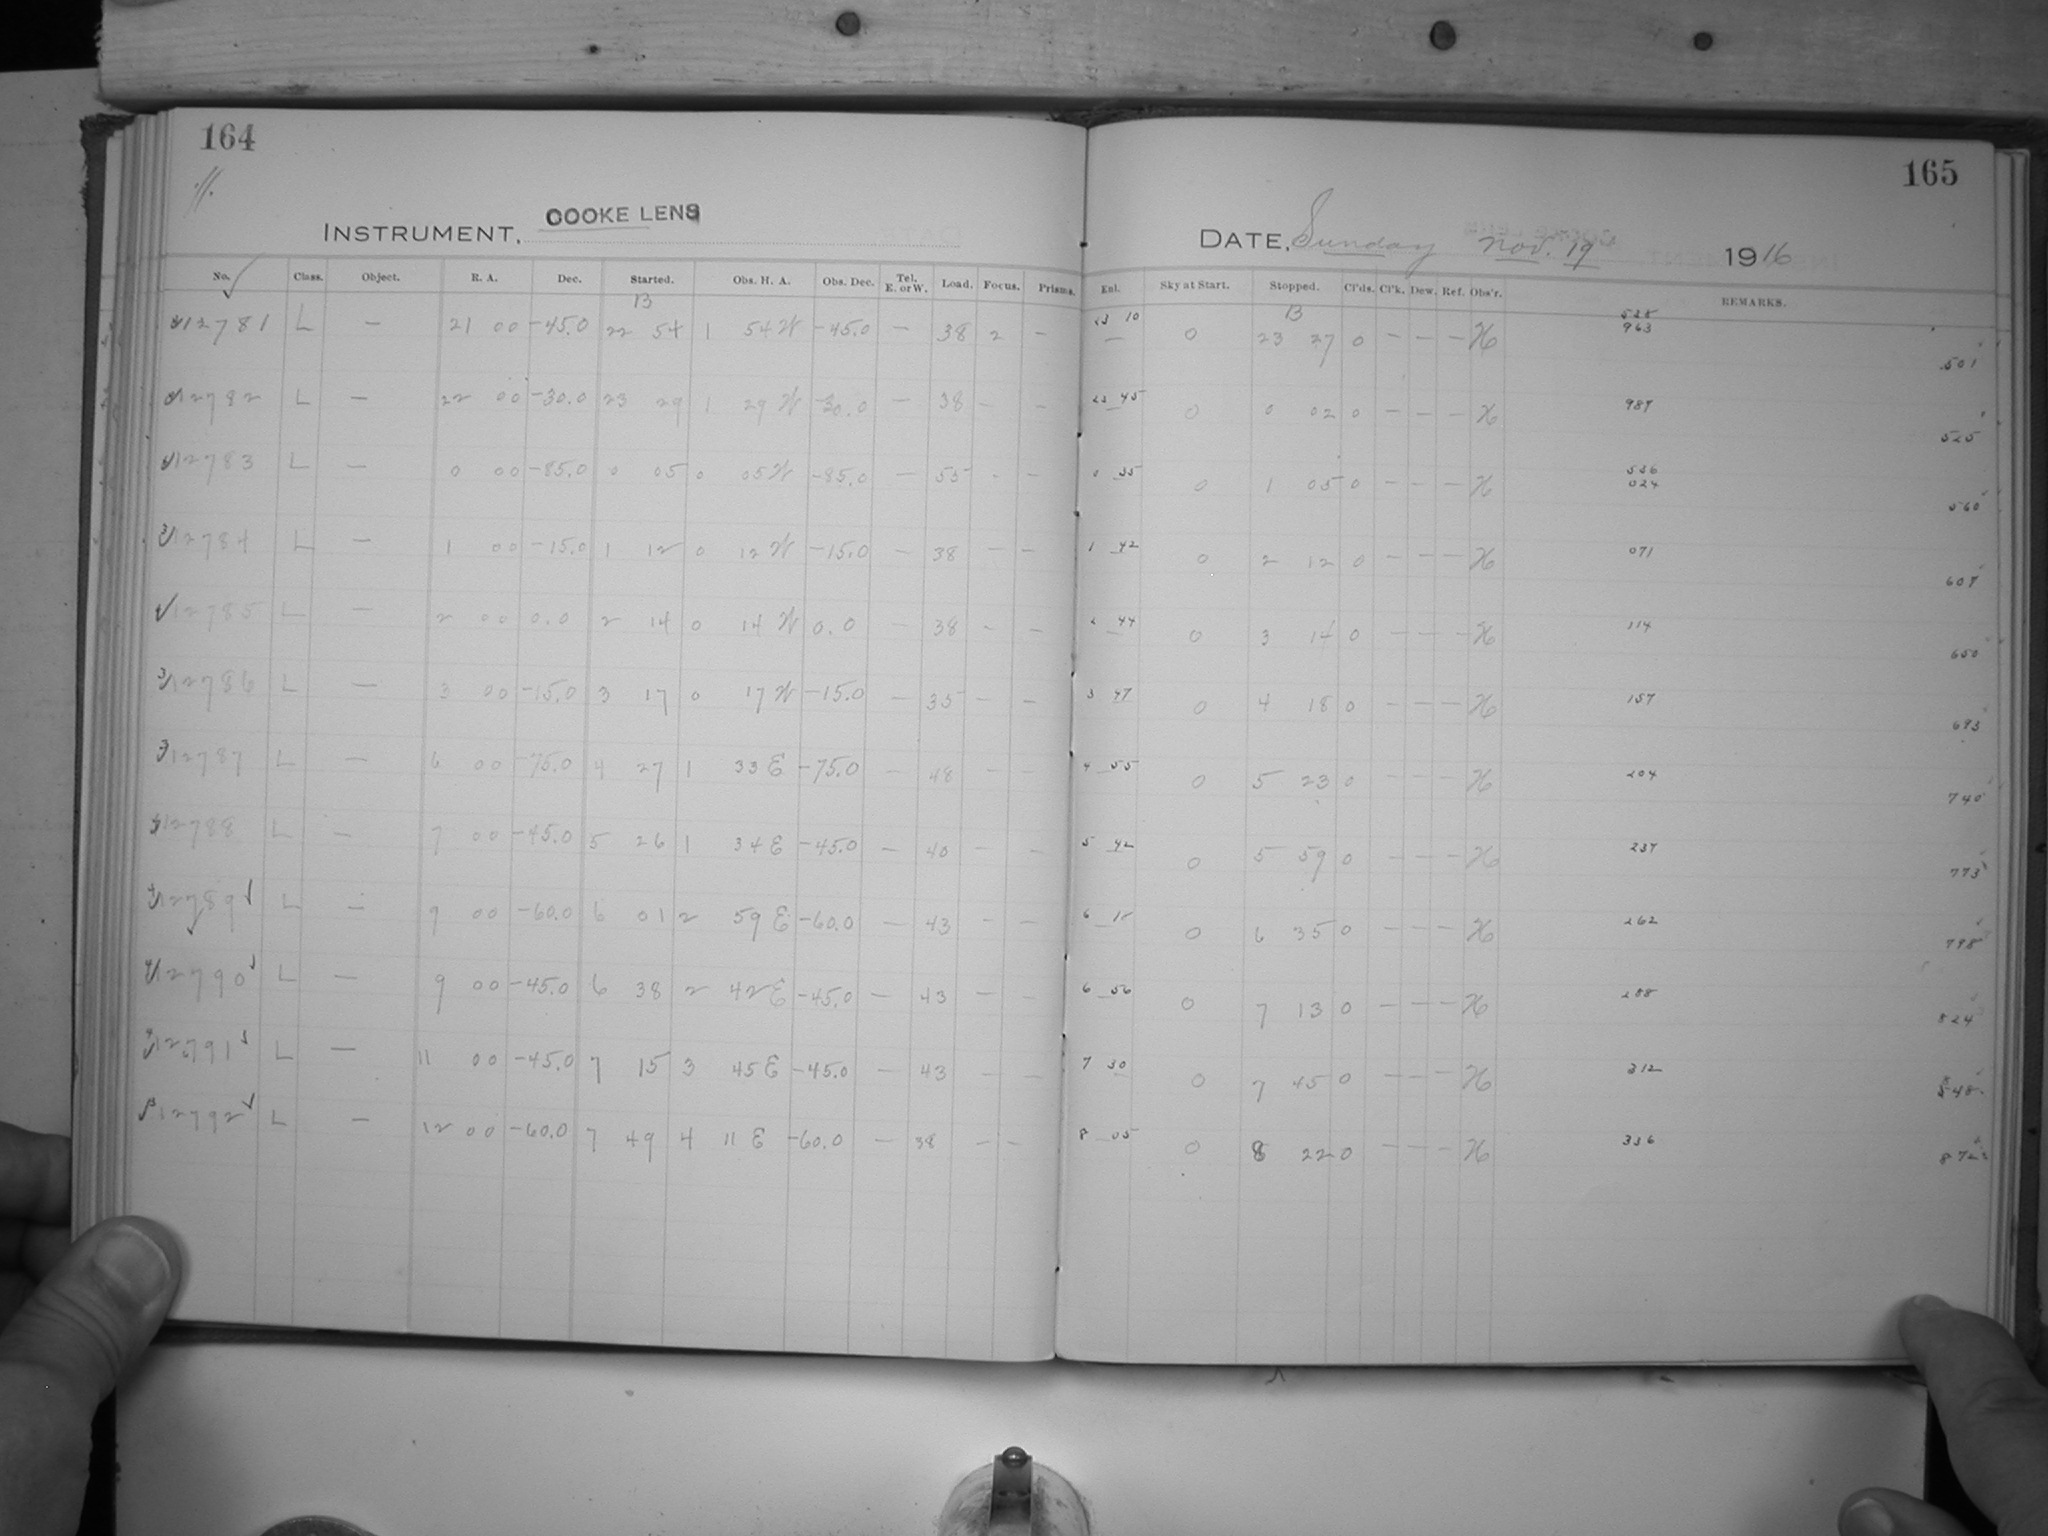 164
165
INSTRUMENT, COOKE LENS
DATE, Sunday Nov. 19 1916
No. Class. Object. R. A. Dec. Started. Obs. H. A. Obs. Dec. Tel. E. or W. Load. Focus. Prisms. Enl. Sky at Start. Stopped. Cl'ds. Cl'k. Dew. Ref. Obs'r. REMARKS.
13 13
12781 L — 21 00 -45.0 22 54 1 54 W -45.0 — 38 2 — 23 10 — 0 23 27 0 — — — H 963 501
12782 L — 22 00 -30.0 23 29 1 29 W -30.0 — 38 - — 23 45 0 0 02 0 — — — H 987 525
12783 L — 0 00 -85.0 0 05 0 05 W -85.0 — 55 - — 0 35 0 1 05 0 — — — H 536 024 560
12784 L — 1 00 -15.0 1 12 0 12 W -15.0 — 38 — — 1 42 0 2 12 0 — — — H 071 607
12785 L — 2 00 0.0 2 14 0 14 W 0.0 — 38 - — 2 44 0 3 14 0 — — — H 114 650
12786 L — 3 00 -15.0 3 17 0 17 W -15.0 — 35 — — 3 47 0 4 18 0 — — — H 157 693
12787 L — 6 00 -75.0 4 27 1 33 E -75.0 — 48 — — 4 55 0 5 23 0 — — — H 204 740
12788 L — 7 00 -45.0 5 26 1 34 E -45.0 — 40 — — 5 42 0 5 59 0 — — — H 237 773
12789 L — 9 00 -60.0 6 01 2 59 E -60.0 — 43 — — 6 18 0 6 35 0 — — — H 262 798
12790 L — 9 00 -45.0 6 38 2 42 E -45.0 — 43 — — 6 56 0 7 13 0 — — — H 288 824
12791 L — 11 00 -45.0 7 15 3 45 E -45.0 — 43 — — 7 30 0 7 45 0 — — — H 312 848
12792 L — 12 00 -60.0 7 49 4 11 E -60.0 — 38 — — 8 05 0 8 22 0 — — — H 336 872